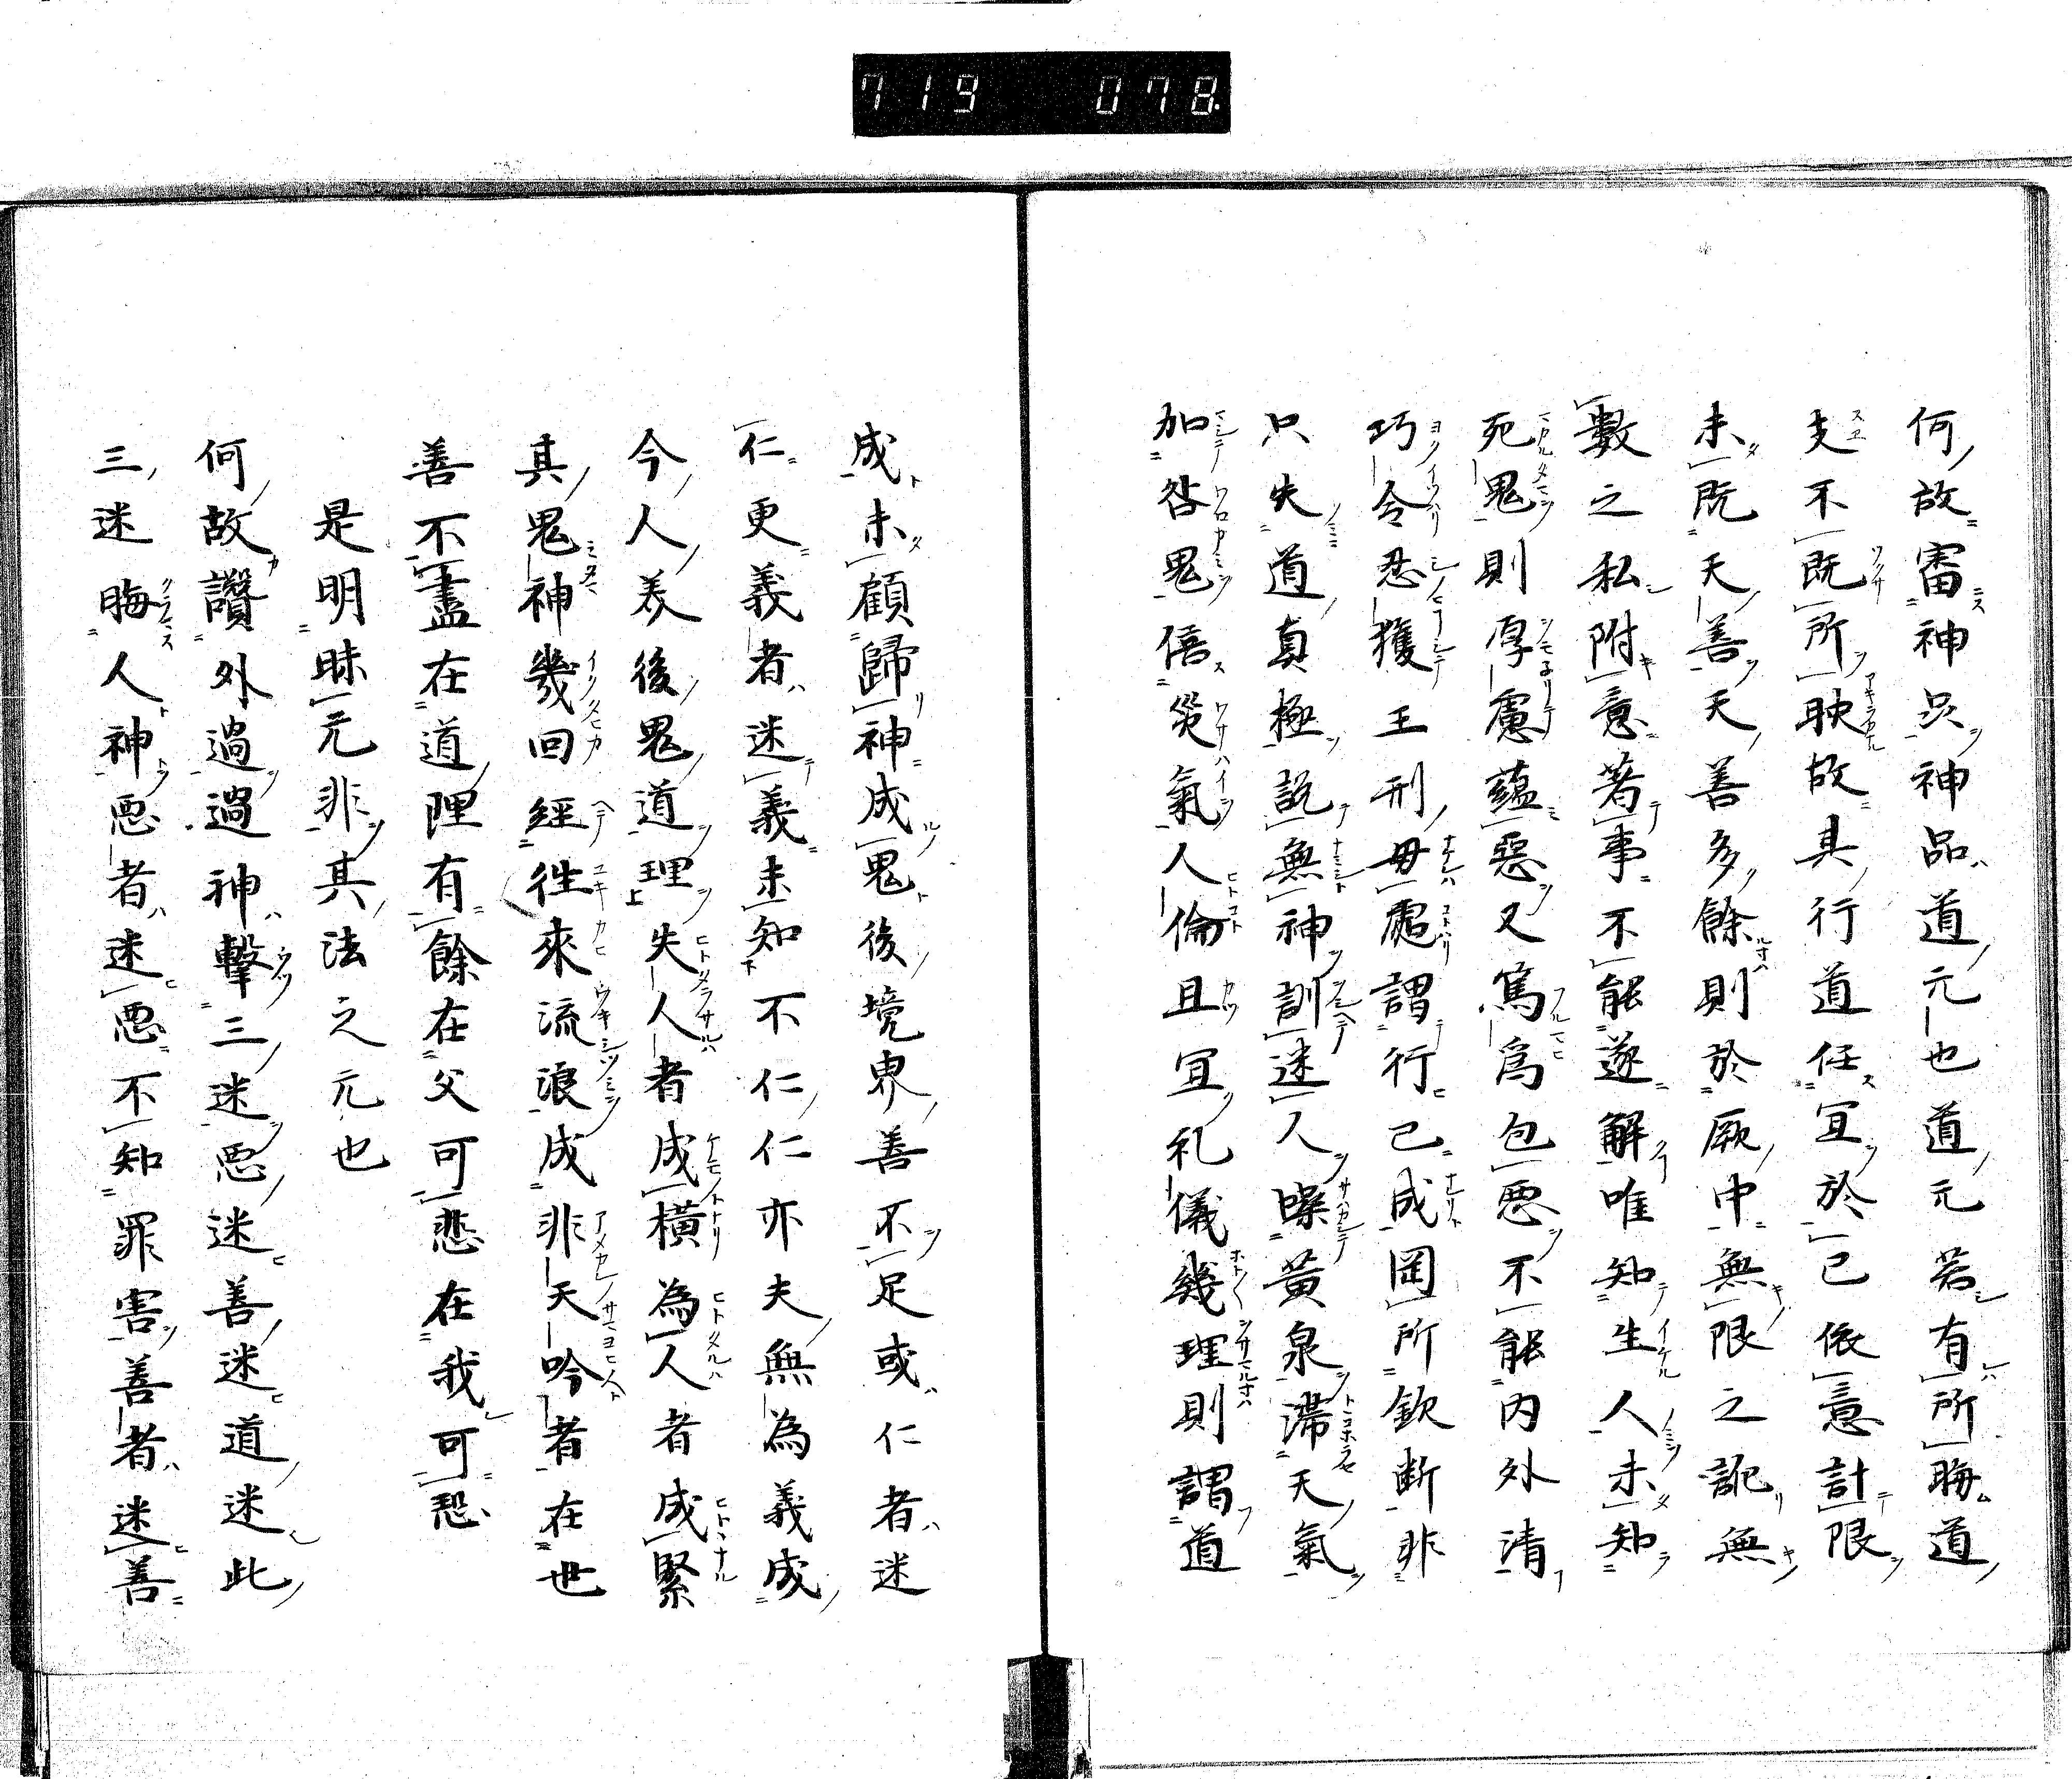 719 078
何故審神只神品道元也道元若有所晦道
支不既所映故具行道任宜於已依意計限
未既天善天善多餘則於厥中無限之訛無
數之私附意著事不能遂解唯知生人未知
死鬼則厚慮蘊惡又篤爲包惡不能內外清
巧令忍獲王刑毋處謂行己成罔所欽斷非
只失道真極説無神訓迷人喋黄泉滞天氣
加咎鬼倍災氣人倫且宜礼儀幾理則謂道
成未顧歸神成鬼後境界善不足或仁者迷
仁更義者迷義未知不仁仁亦夫無為義成
今人羙後鬼道理失人者成橫為人者成緊
其鬼神幾回經徃來流浪成非天吟者在世
善不盡在道理有餘在父可悲在我可恐
是明昧元非其法之元也
何故讚外過過神擊三迷惡迷善迷道迷此
三迷晦人神惡者迷惡不知罪害善者迷善